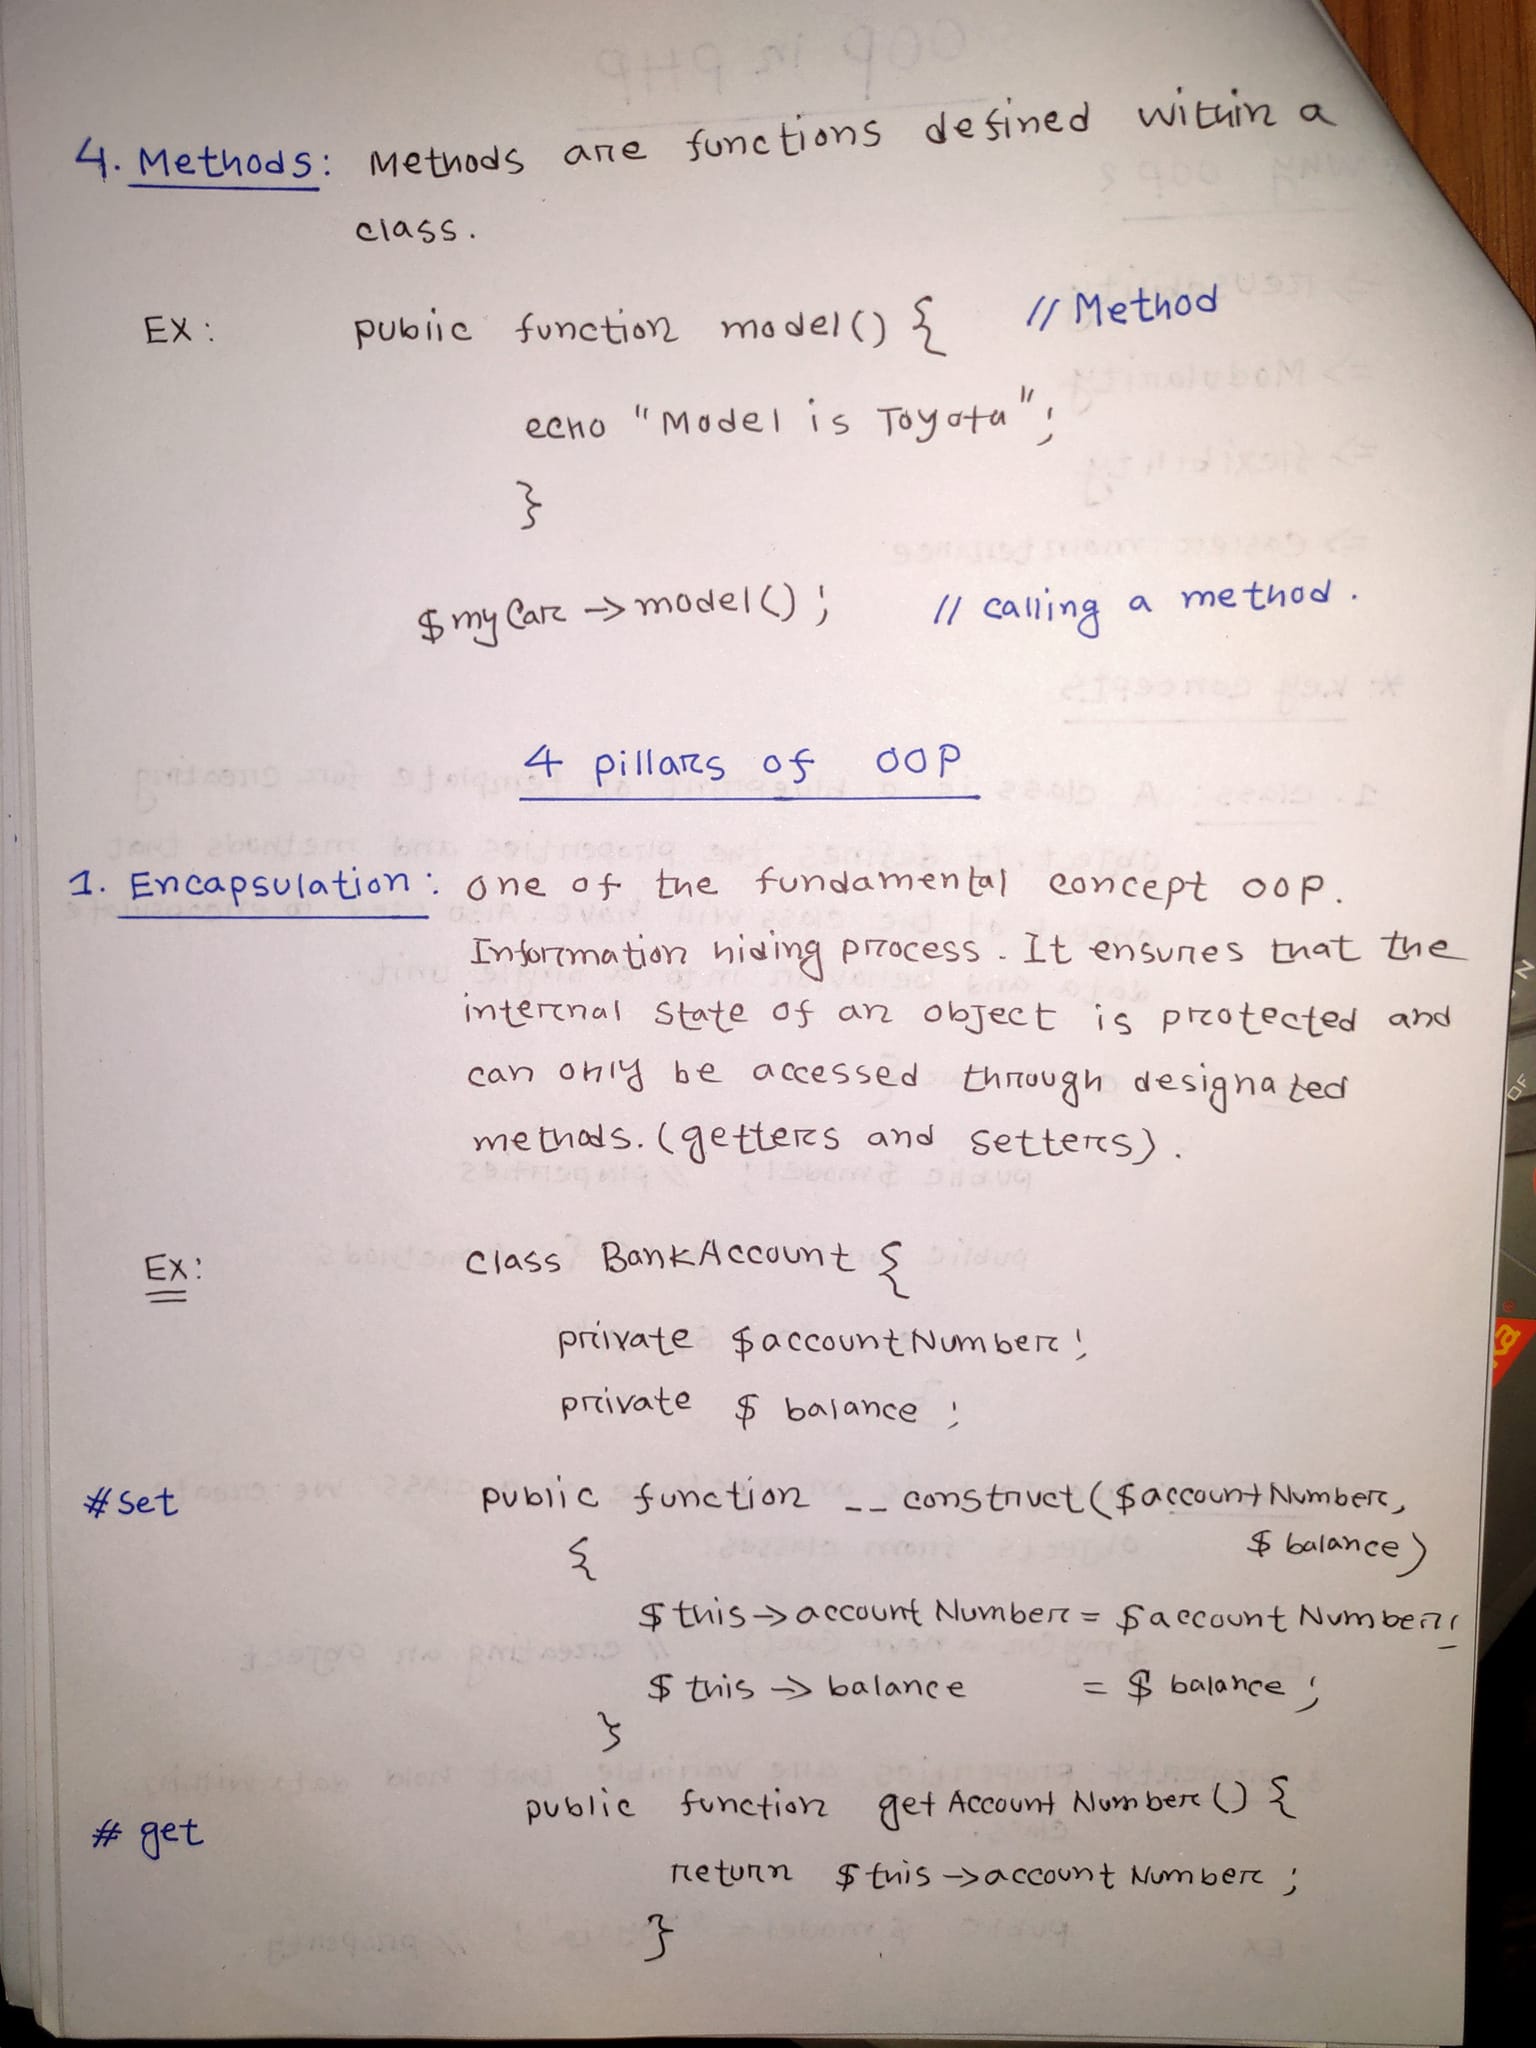 4. Methods: Methods are functions defined within a
class.
EX: public function model() { // Method
echo "Model is Toyota";
}
$myCar->model(); // calling a method.
4 pillars of OOP
1. Encapsulation: one of the fundamental concept OOP.
Information hiding process. It ensures that the
internal state of an object is protected and
can only be accessed through designated
methods. (getters and setters).
EX: class BankAccount {
private $accountNumber;
private $ balance ;
#set public function __construct($accountNumber,
$ balance)
{
$this->accountNumber = $accountNumber;
$this->balance = $ balance ;
}
# get public function getAccountNumber() {
return $this->accountNumber ;
}